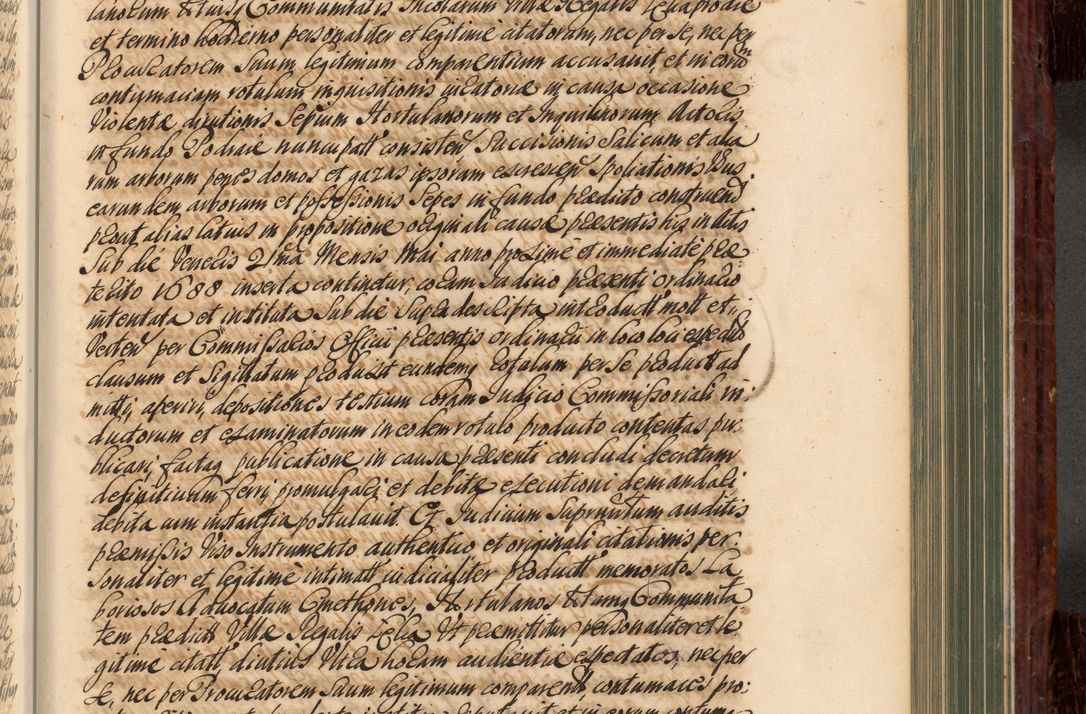 et termino hodierno personaliter et legitime citatorum, nec per se, nec per
Procuratorem suum legitimum comparentium accusavit, et in eorum
contumaciam rotulum inquisitionis in causa occasione
Violentæ direutionis Sepium Hortulanorum et Inquilinorum
in fundo nuncupatt consisten Succisionis Salicum et alia
rum arborum penes domos et ipsorum Spoliationis
earundem arborum et possessionis Sepes in fundo prædicto construend
prout alias latius in propositione originali causæ præsentis his in
Sub die Veneris 21ma Mensis Mai anno proxime et immediate præ
terito 1688 inserta continetur, coram Judicio præsenti ordinario
intentata et instituta Sub die Supra descripta introductt mott et
Verten per Commissarios Officii præsentis ordinarii in loco loci expedit
clausum et Sigillatum produxit eundemq rotulum per se productt ad
mitti, aperiri, depositiones testium coram Judicio Commissoriali in:
ductorum et examinatorum in eodem rotulo producto contentas pu:
blicari, factaq publicatione in causa præsenti concludi decretum
definitivum ferri, promulgari et debitæ executioni demandari
debita cum instantia postulavit. Et Judicium Supremum auditis
præmissis Viso Instrumento authentico et originali citationis per:
sonaliter et legitime intimatt judicialiter productt memoratos La
boriosos Advocatum Cmethones, Hortulanos totamq Communita
tem prædictt Villæ Regalis Ut præmittitur personaliter et le
gitime citatt, diutius Ultra horam audientiæ expectatos, nec per
se, nec per Procuratorem suum legitimum comparend contumaces pro: